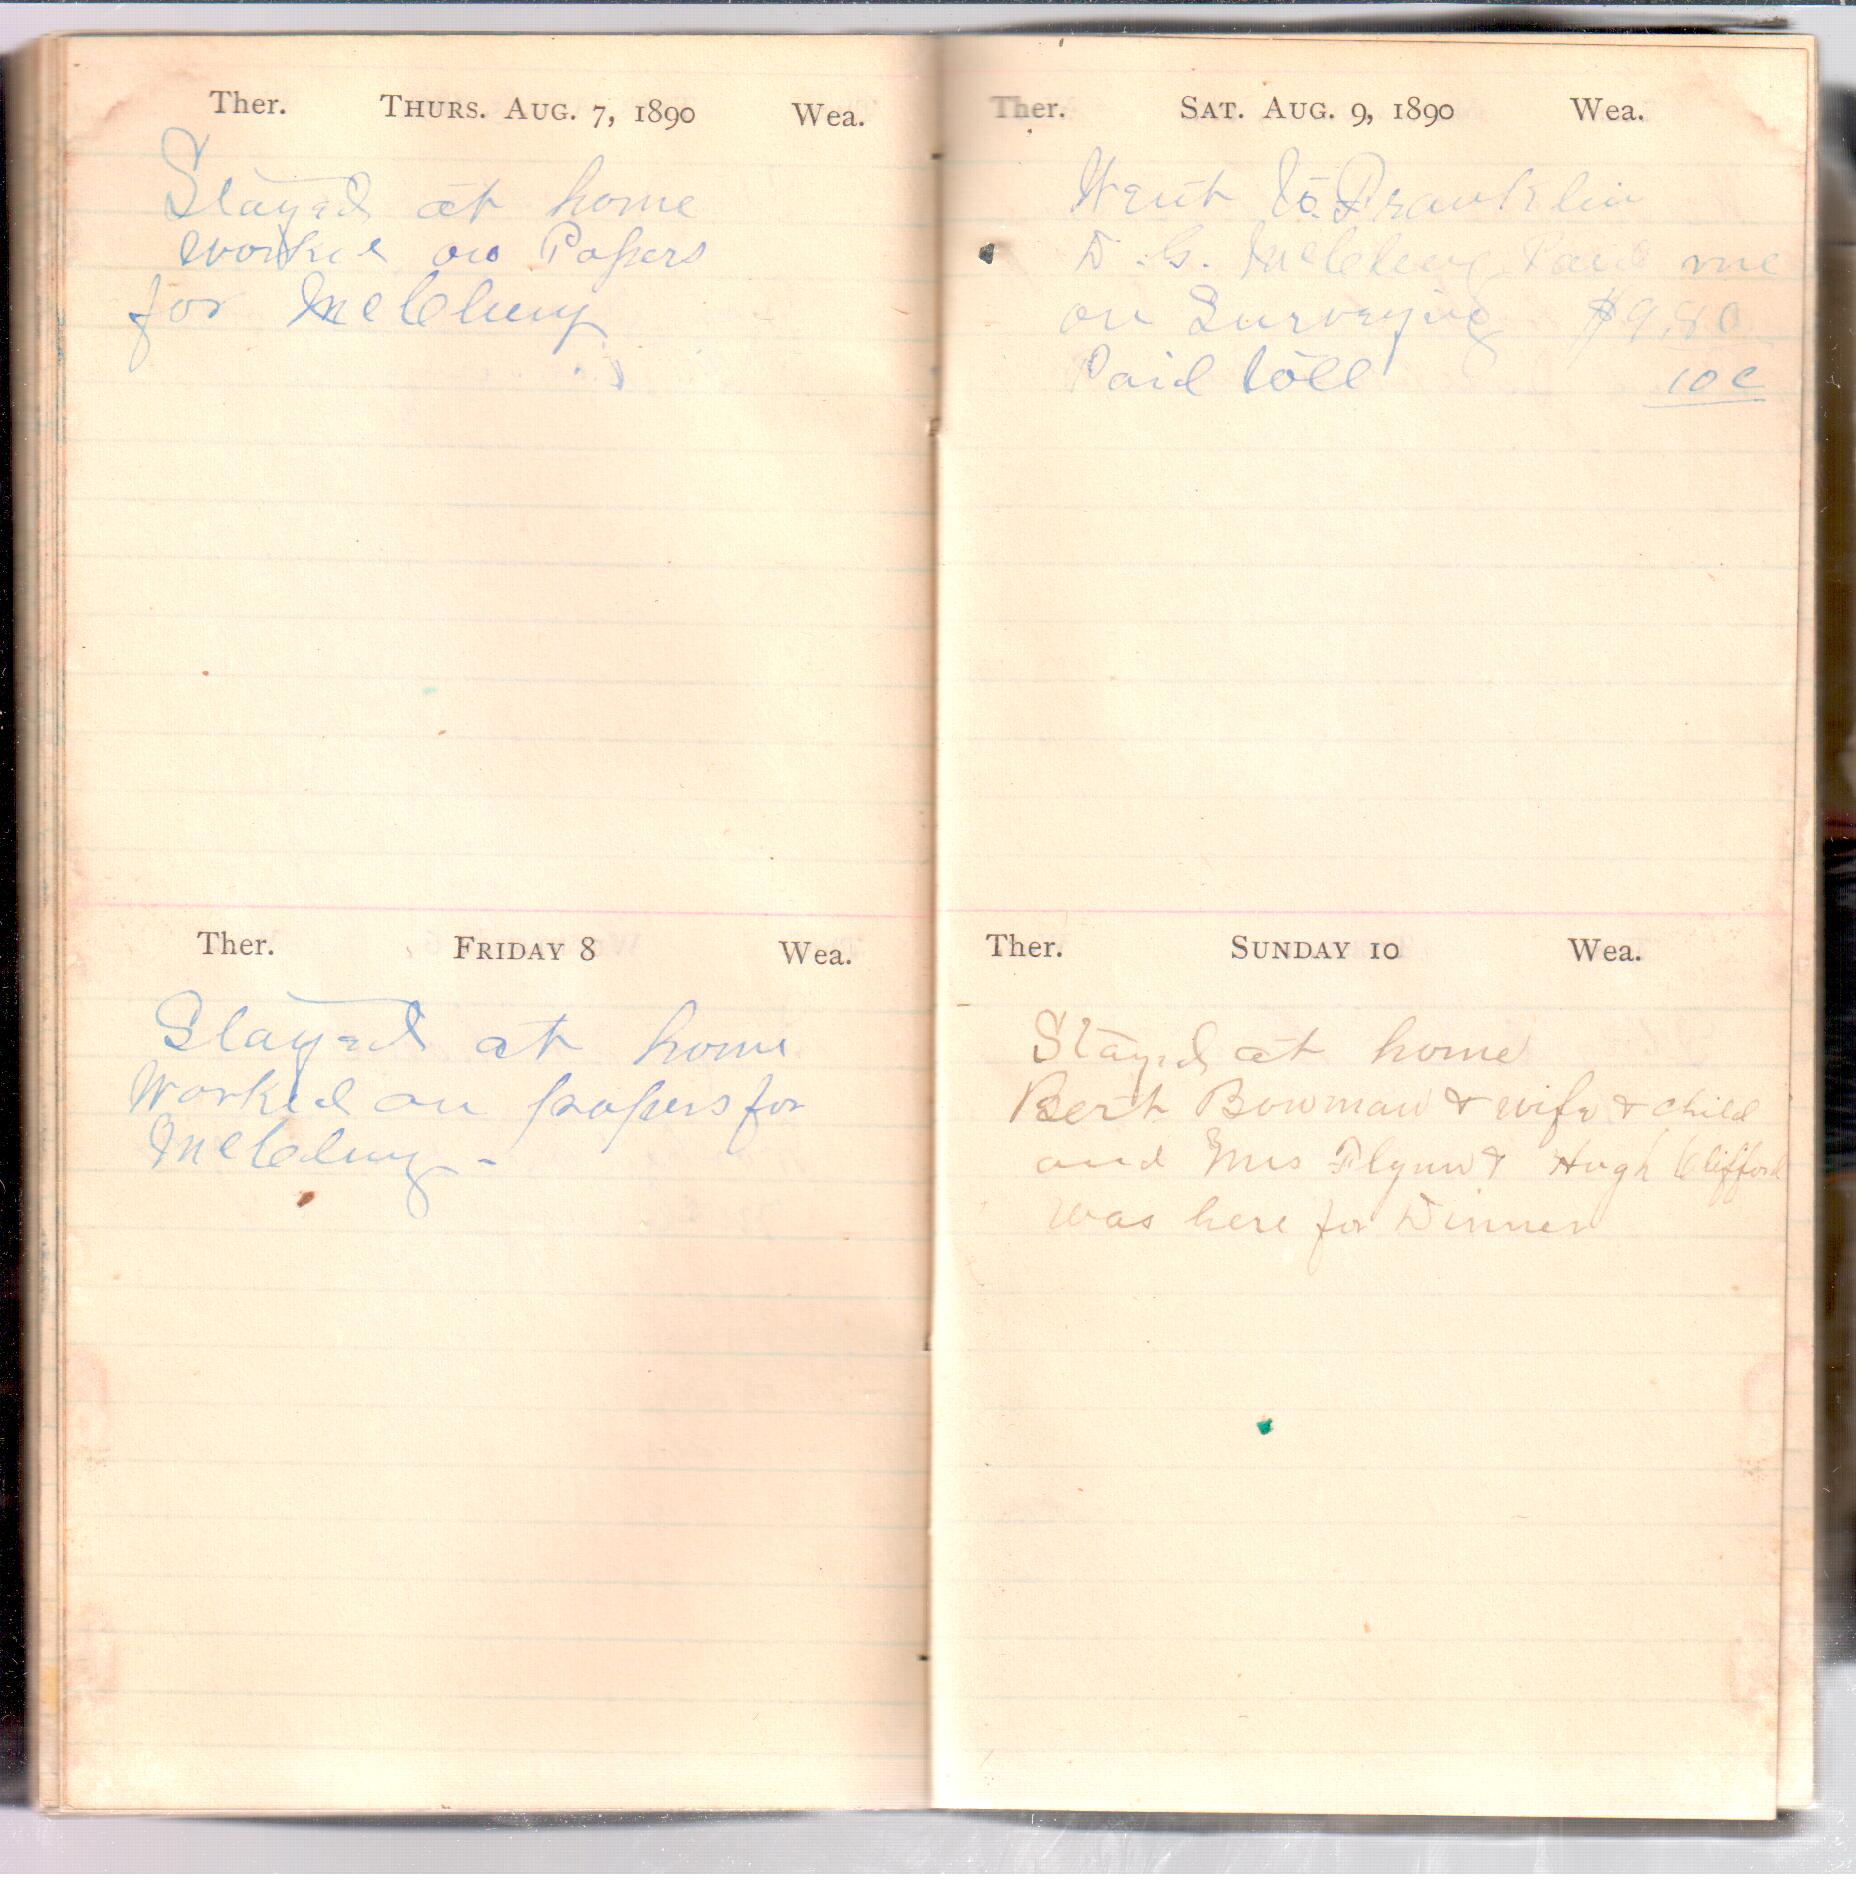 Ther. THURS. AUG. 7, 1890 Wea.
Stayed at home
worked on Papers
for McClung
Ther. FRIDAY 8 Wea.
Stayed at home
Worked on papers for
McClung -
Ther. SAT. AUG. 9, 1890 Wea.
Went to Franklin
D. G. McClung Paid me
on Surveying $9.80
Paid toll 10c
Ther. SUNDAY 10 Wea.
Stayed at home
Bert Bowman & wife & child
and Mrs Flynn & Hugh Clifford
was here for Dinner